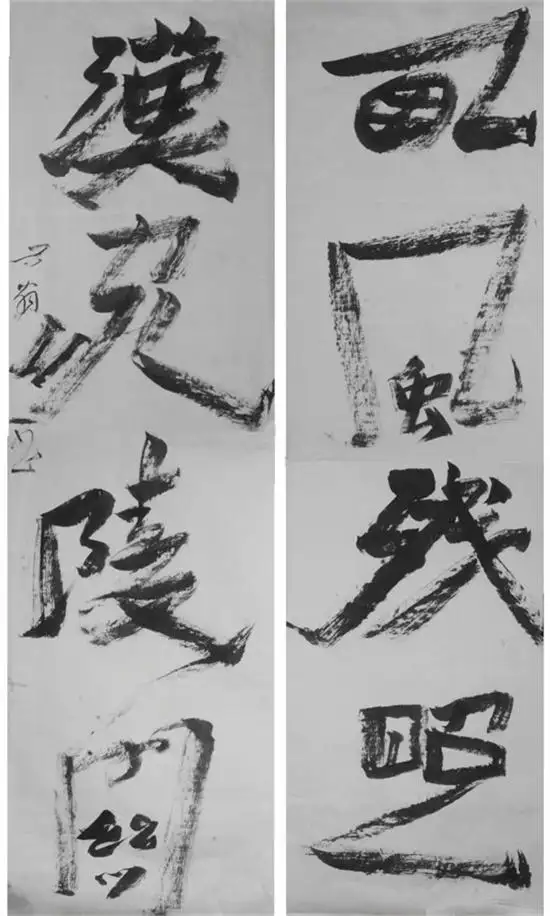 西風残照
漢家陵闕
翁